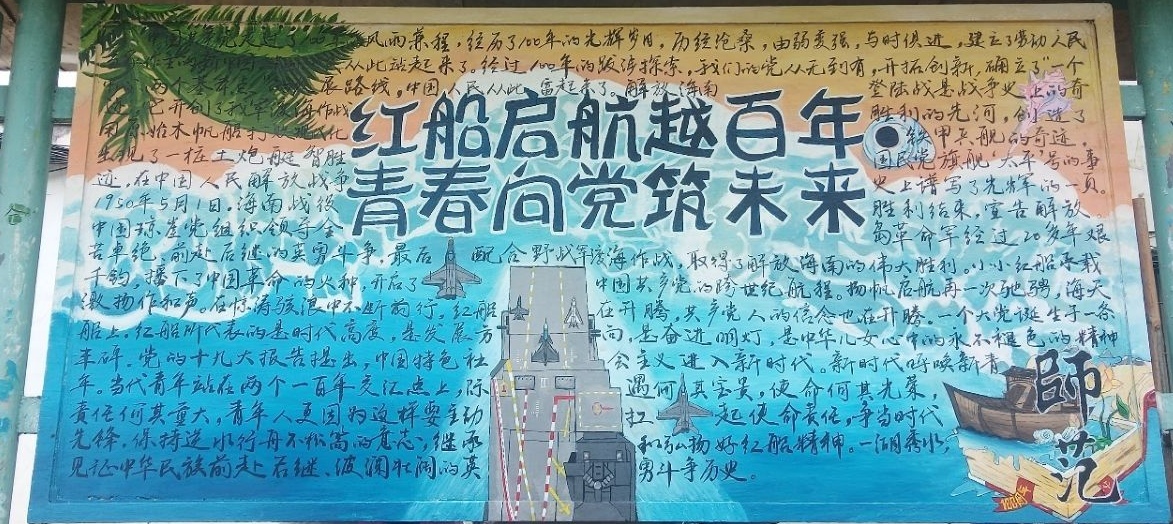 红船启航越百年
青春向党筑未来
风雨兼程，经历了100年的光辉岁月，历经沧桑，由弱变强，与时俱进，建立了劳动人民
从此站起来了。经过100年的跋涉探索，我们的党从无到有，开拓创新，确立了"一个
路线，中国人民从此富起来了。解放海南
登陆战是战争史上的奇
迹，它开创了我军渡海作战
胜利的先河，创造了
铁甲兵舰的奇迹，
出现了一桩土炮艇智胜
国民党旗舰"太平"号的事
迹，在中国人民解放战争
史上谱写了光辉的一页。
1950年5月1日，海南战役
胜利结束，宣告解放。
中国琼崖党组织领导全
岛革命军经过20多年艰
苦卓绝、前赴后继的英勇斗争，最后配合野战军渡海作战，取得了解放海南的伟大胜利。小小红船承载
千钧，播下了中国革命的火种，开启了中国共产党的跨世纪航程。扬帆启航再一次驰骋，海天
激扬作和声。在惊涛骇浪中不断前行。红船在升腾，共产党人的信念也在升腾。一个大党诞生于一条
船上。红船所代表的是时代高度，是发展方向，是奋进明灯，是中华儿女心中的永不褪色的精神
丰碑。党的十九大报告提出，中国特色社会主义进入新时代。新时代呼唤新青
年。当代青年站在两个一百年交汇点上，际遇何其宝贵，使命何其光荣，
责任何其重大，青年人更因为这样要主动扛起使命责任，争当时代
先锋。保持逆水行舟不松篙的意志，继承和弘扬好红船精神。一湖秀水，
见证中华民族前赴后继、波澜壮阔的英勇斗争历史。
師范
100周年